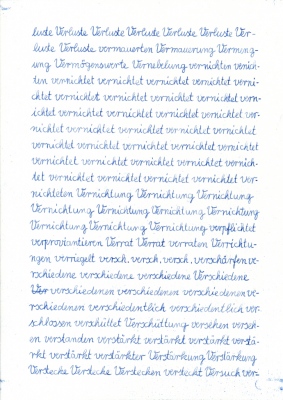 luste Verluste Verluste Verluste Verluste Ver-
luste Verluste vermauerten Vermauerung Vermeng-
ung Vermögenswerte Vernebelung vernichten vernich-
ten vernichtet vernichtet vernichtet vernichtet verni-
chtet vernichtet vernichtet vernichtet vernichtet vern-
ichtet vernichtet vernichtet vernichtet vernichtet ver-
nichtet vernichtet vernichtet vernichtet vernichtet
vernichtet vernichtet vernichtet vernichtet vernichtet
vernichtet vernichtet vernichtet vernichtet vernich-
tet vernichtet vernichtet vernichtet vernichtet ver-
nichteten Vernichtung Vernichtung Vernichtung
Vernichtung Vernichtung Vernichtung Vernichtung
Vernichtung Vernichtung Vernichtung verpflichtet
verproviantieren Verrat Verrat verraten Verrichtu-
ngen verriegelt versch. versch. versch. verschärfen ve-
rschiedene verschiedene verschiedene Verschiedene
verschiedenen verschiedenen verschiedenen ve-
rschiedenen verschiedentlich verschiedentlich ver-
schlossen verschüttet Verschüttung versehen verseh-
en verstanden verstärkt verstärkt verstärkt verstä-
rkt verstärkt verstärkter Verstärkung Verstärkung
Verstecke Verstecke Verstecken versteckt Versuch ver-